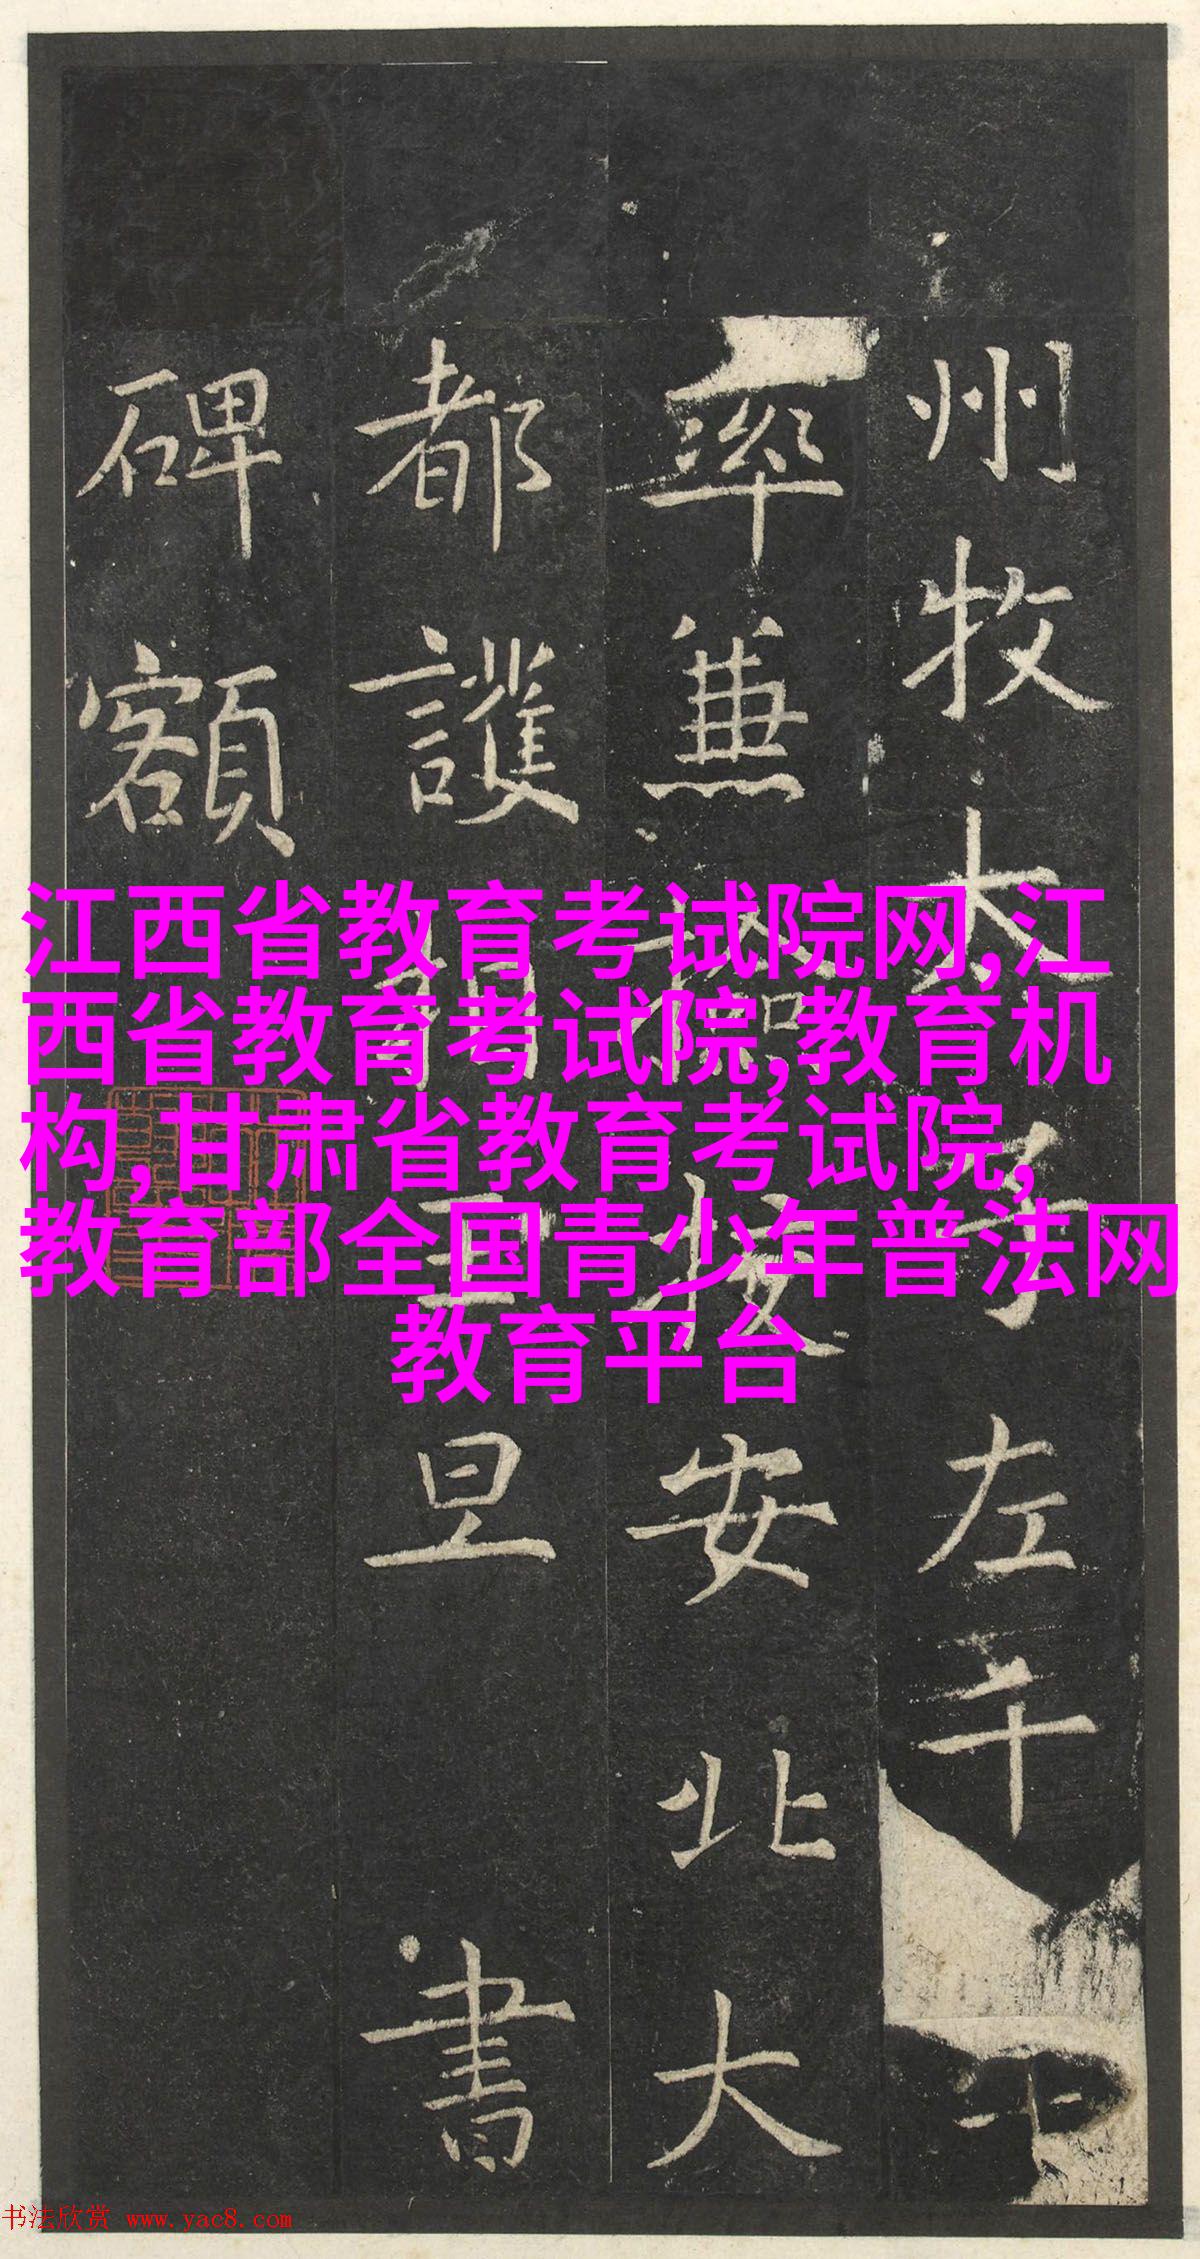 州牧大子左千
率兼撿挍安北大
都護相王旦書
碑額
江西省教育考试院网,江
西省教育考试院,教育机
构,甘肃省教育考试院,
教育部全国青少年普法网
教育平台
书法欣赏 www.yac8.com